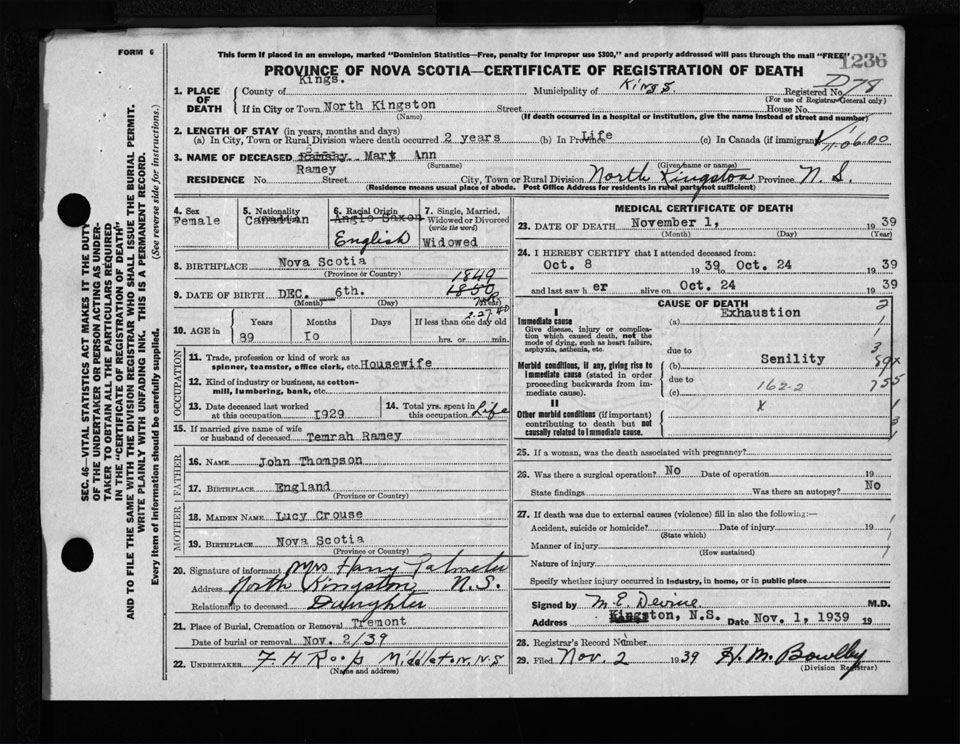 FORM 6
This form if placed in an envelope, marked "Dominion Statistics—Free, penalty for improper use $300," and properly addressed will pass through the mail "FREE"
1236
PROVINCE OF NOVA SCOTIA—CERTIFICATE OF REGISTRATION OF DEATH
1. PLACE OF DEATH
County of Kings. Municipality of Kings. Registered No. D78
(For use of Registrar-General only)
If in City or Town North Kingston Street House No.
(Name) (If death occurred in a hospital or institution, give the name instead of street and number)
2. LENGTH OF STAY (in years, months and days)
(a) In City, Town or Rural Division where death occurred 2 years (b) In Province Life (c) In Canada (if immigrant)
3. NAME OF DECEASED Ramsay Mary Ann
Ramey (Surname) (Given name or names)
RESIDENCE No. Street City, Town or Rural Division North Kingston Province N. S.
(Residence means usual place of abode. Post Office Address for residents in rural parts not sufficient)
4. Sex
Female
5. Nationality
Canadian
6. Racial Origin
Anglo Saxon
English
7. Single, Married, Widowed or Divorced
(write the word)
Widowed
8. BIRTHPLACE Nova Scotia
(Province or Country)
1849
9. DATE OF BIRTH DEC. 6th. 1850
(Month) (Day) (Year)
2.27.40
10. AGE in Years Months Days If less than one day old
89 IO hrs. or min.
OCCUPATION
11. Trade, profession or kind of work as
spinner, teamster, office clerk, etc. Housewife
12. Kind of industry or business, as cotton-
mill, lumbering, bank, etc.
13. Date deceased last worked
at this occupation I929
14. Total yrs. spent in
this occupation Life
15. If married give name of wife
or husband of deceased Temrah Ramey
FATHER
16. NAME John Thompson
17. BIRTHPLACE England
(Province or Country)
MOTHER
18. MAIDEN NAME Lucy Crouse
19. BIRTHPLACE Nova Scotia
(Province or Country)
20. Signature of informant Mrs Harry Palmeter
Address North Kingston N.S.
Relationship to deceased Daughter
21. Place of Burial, Cremation or Removal Tremont
Date of burial or removal Nov. 2/39
22. UNDERTAKER F. H Roop Middleton, N.S
(Name and address)
MEDICAL CERTIFICATE OF DEATH
23. DATE OF DEATH November 1, 1939
(Month) (Day) (Year)
24. I HEREBY CERTIFY that I attended deceased from:
Oct. 8 1939 to Oct. 24 1939
and last saw her alive on Oct. 24 1939
CAUSE OF DEATH
I
Immediate cause
Give disease, injury or complica-
tion which caused death, not the
mode of dying, such as heart failure,
asphyxia, asthenia, etc.
(a) Exhaustion
due to
Morbid conditions, if any, giving rise to
immediate cause (stated in order
proceeding backwards from im-
mediate cause).
(b) Senility
due to
(c) 162-2
II
Other morbid conditions (if important)
contributing to death but not
causally related to immediate cause.
x
25. If a woman, was the death associated with pregnancy?
26. Was there a surgical operation? No Date of operation 19
State findings Was there an autopsy? No
27. If death was due to external causes (violence) fill in also the following:—
Accident, suicide or homicide? Date of injury 19
(State which)
Manner of injury
(How sustained)
Nature of injury
Specify whether injury occurred in industry, in home, or in public place
Signed by M. E. Devine M.D.
Address Kingston, N.S. Date Nov. 1, 1939 19
28. Registrar's Record Number
29. Filed Nov. 2 1939 H. M. Bowlby
(Division Registrar)
SEC. 46—VITAL STATISTICS ACT MAKES IT THE DUTY
OF THE UNDERTAKER OR PERSON ACTING AS UNDER-
TAKER TO OBTAIN ALL THE PARTICULARS REQUIRED
IN THE "CERTIFICATE OF REGISTRATION OF DEATH"
AND TO FILE THE SAME WITH THE DIVISION REGISTRAR WHO SHALL ISSUE THE BURIAL PERMIT.
WRITE PLAINLY WITH UNFADING INK. THIS IS A PERMANENT RECORD.
Every item of information should be carefully supplied. (See reverse side for instructions.)